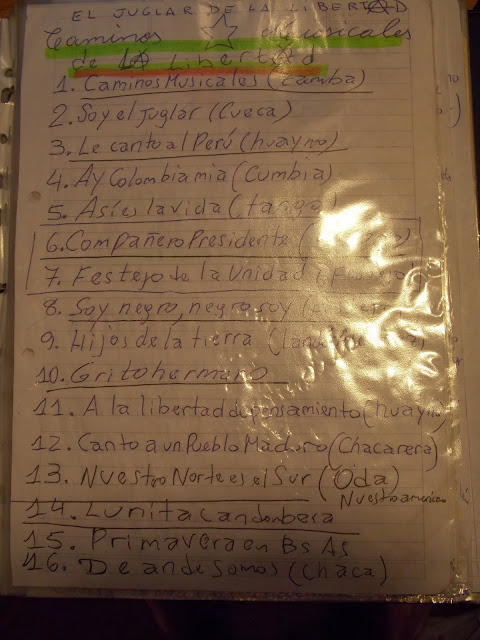 EL JUGLAR DE LA LIBERTAD
Caminos Musicales
de la Libertad
1. Caminos Musicales (Zamba)
2. Soy el juglar (Cueca)
3. Le canto al Perú (huayno)
4. Ay Colombia mia (Cumbia)
5. Asíes la vida (tango)
6. Compañero Presidente
7. Festejo de la Unidad (Festejo)
8. Soy negro, negro soy
9. Hijos de la tierra
10. Grito hermano
11. A la libertad de pensamiento (huayno)
12. Canto a un Pueblo Maduro (Chacarera)
13. Nuestro Norte es el Sur (Oda)
Nuestroamericana
14. Lunita Candombera
15. Primavera en Bs As
16. De ande Somos (Chaca)